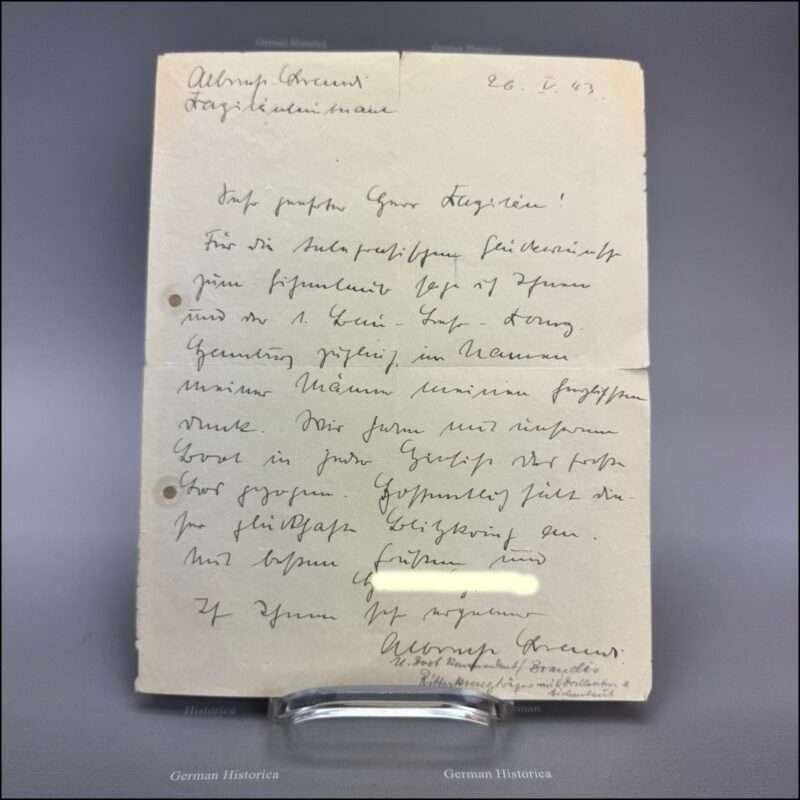 German Historica
German Historica
Albrecht Brandi
Kapitänleutnant
26. V. 43.
Sehr geehrter Herr Kapitän!
Für die telegrafischen Glückwünsche
zum Eichenlaub sage ich Ihnen
und der 1. Bau-Lehr-Komp.
Hamburg zugleich im Namen
meiner Männer meinen herzlichsten
Dank. Wir haben mit unserem
Boot in jeder Hinsicht das große
Los gezogen. Hoffentlich hält die-
ser glückhafte an.
Mit besten Grüßen und
H
Ihnen sehr ergebener
Albrecht Brandi
U. Boot Kommandant Brandis
Ritterkreuzträger mit Brillanten u
Eichenlaub
Historica
German
German Historica
German Historica